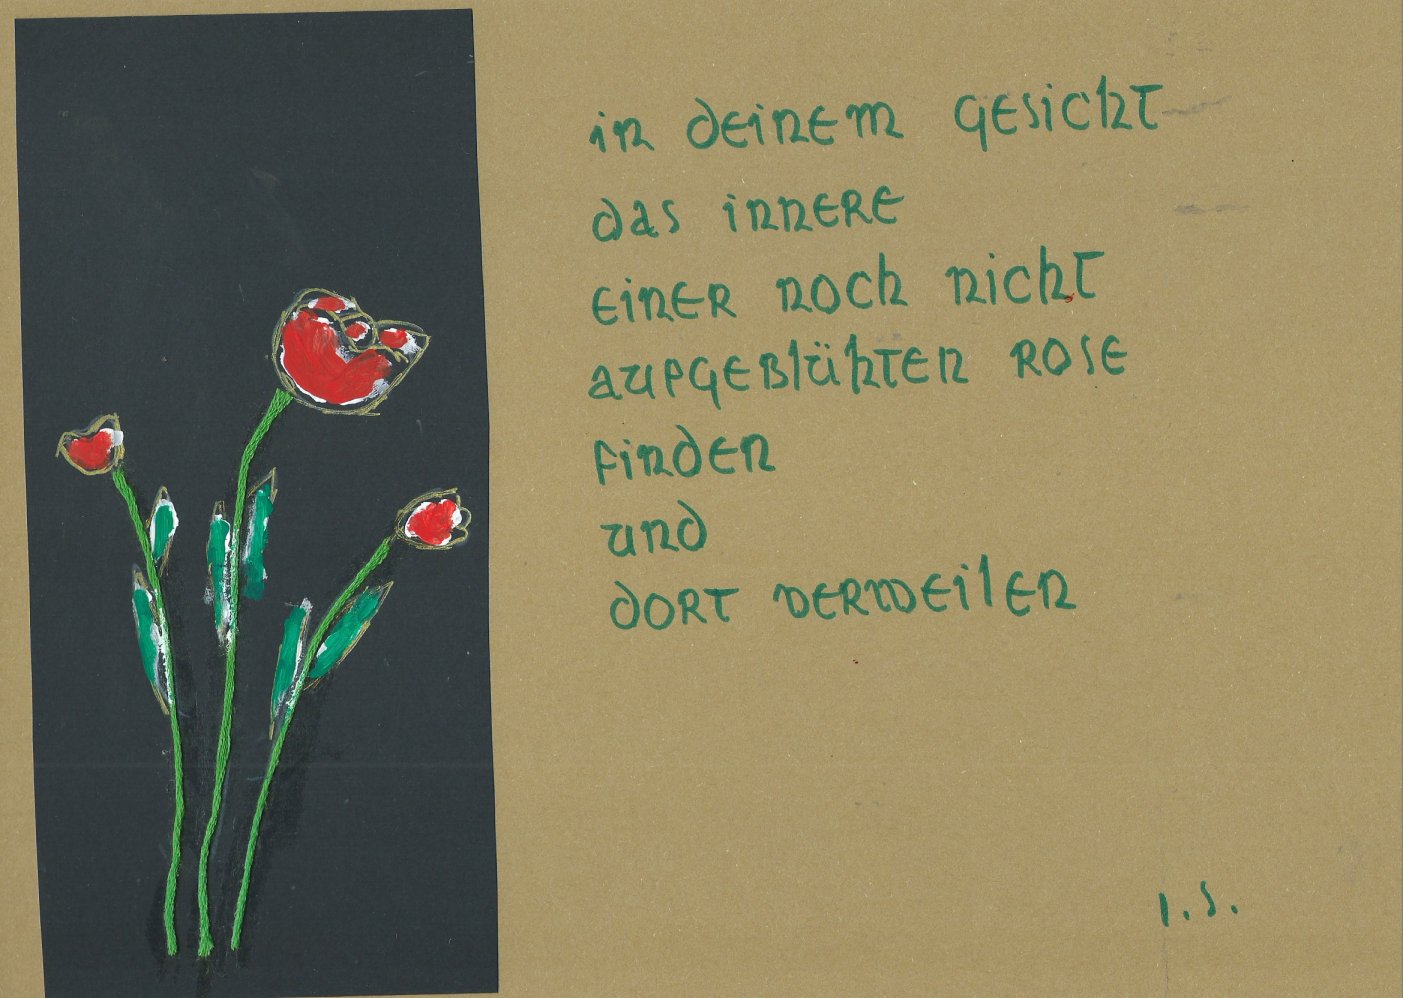 in deinem gesicht
das innere
einer noch nicht
aufgeblühten rose
finden
und
dort verweilen
I.S.